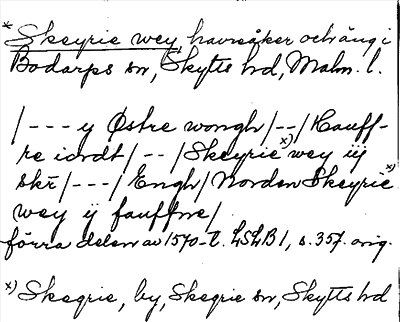 * Skeyrie wey, havreåker och äng i
Bodarps sn, Skytts hd, Malm. l.
/--- y Østre wongh/--/Hauff-
re iordt/--/Skeyrie x) wey iij
skr̄/---/Engh/Norden Skeyrie x)
wey ij fauffne/
förra delen av 1570-t. LSLB 1, s. 357. orig.
x) Skegrie, by, Skegrie sn, Skytts hd